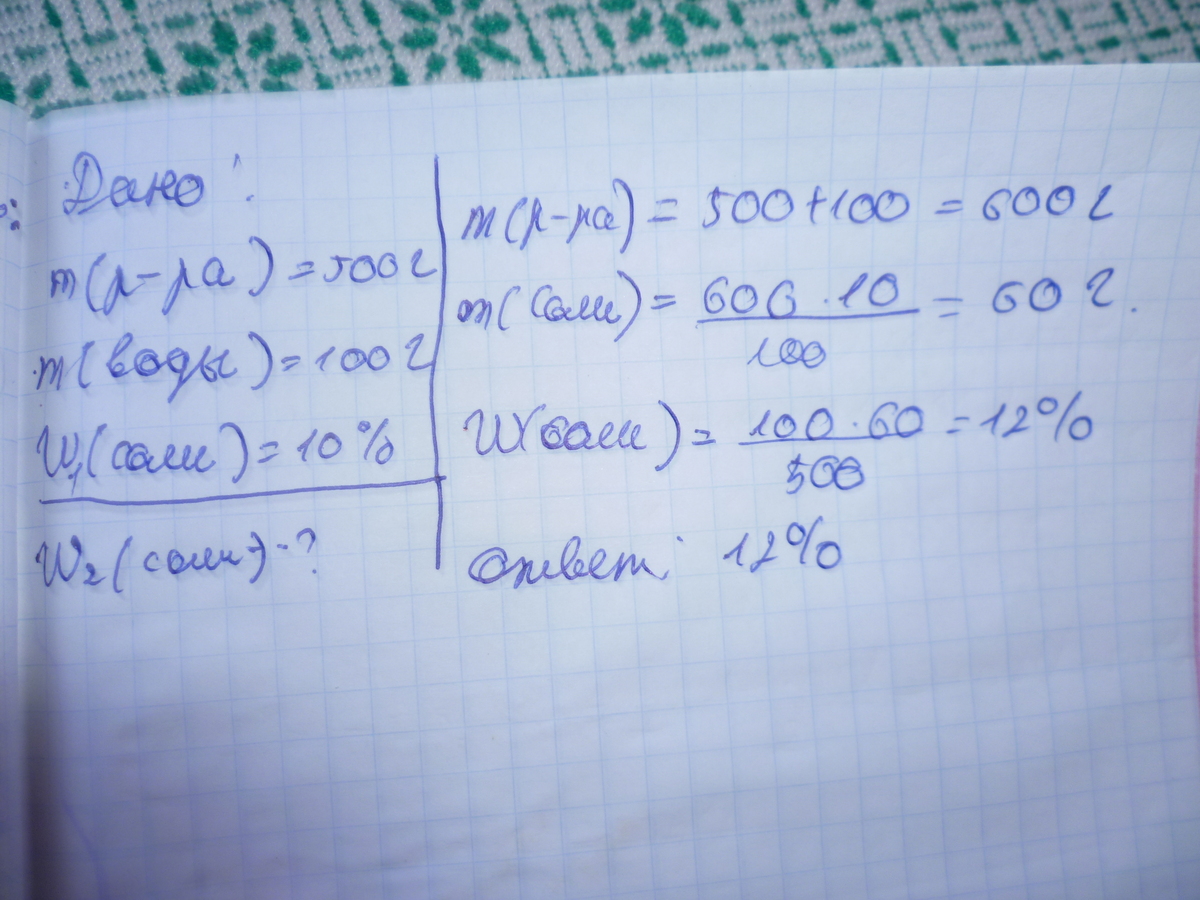 Дано:
m(р-ра) = 500г
m(воды) = 100г
W₁(соли) = 10%
W₂(соли) - ?
m(р-ра) = 500+100 = 600г
m(соли) = 600 · 10 / 100 = 60 г.
W(соли) = 100 · 60 / 500 = 12%
Ответ: 12%